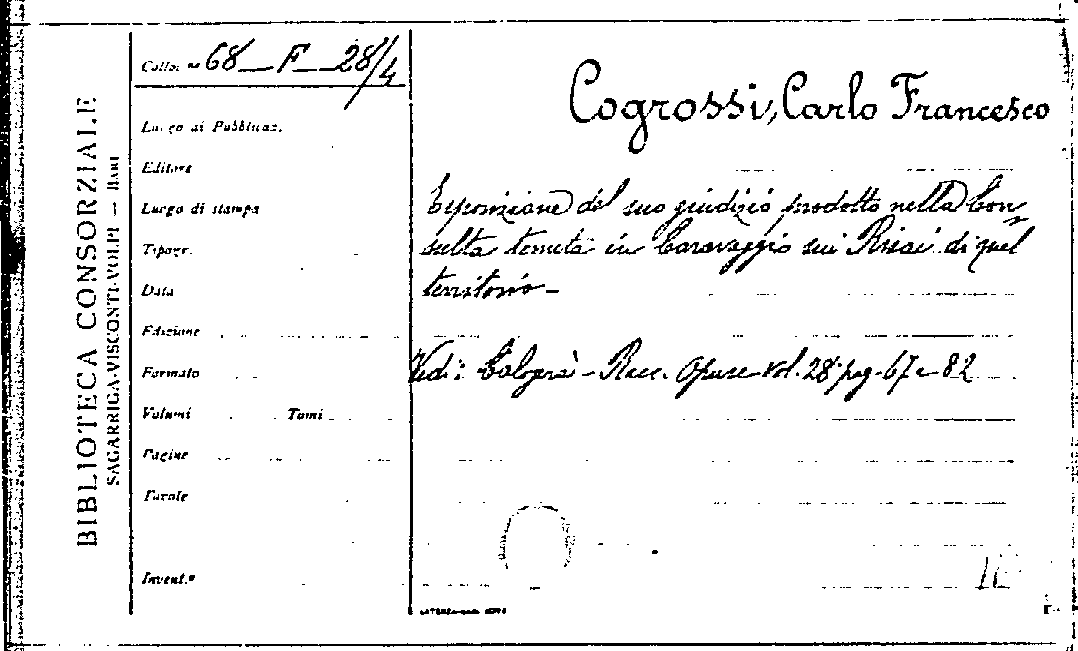 BIBLIOTECA CONSORZIALE
SAGARRIGA-VISCONTI-VOLPI — BARI
Colloc.ne 68_F_28/4
Luogo di Pubblicaz.
Editore
Luogo di stampa
Tipogr.
Data
Edizione
Formato
Volumi Tomi
Pagine
Tavole
Invent.°
Cogrossi, Carlo Francesco
Esposizione del suo giudizio prodotto nella Con=
sulta tenuta in Caravaggio sui Risai di quel
territorio –
Vedi: Calogerà - Racc. Opusc. vol. 28 pag. 67 a 82